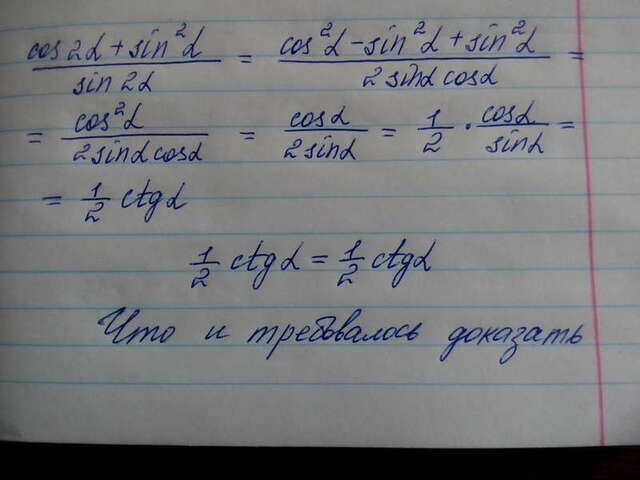 (cos 2α + sin²α) / (sin 2α) = (cos²α - sin²α + sin²α) / (2 sinα cosα) =
= cos²α / (2 sinα cosα) = cosα / (2 sinα) = 1/2 · cosα / sinα =
= 1/2 ctgα
1/2 ctgα = 1/2 ctgα
Что и требовалось доказать